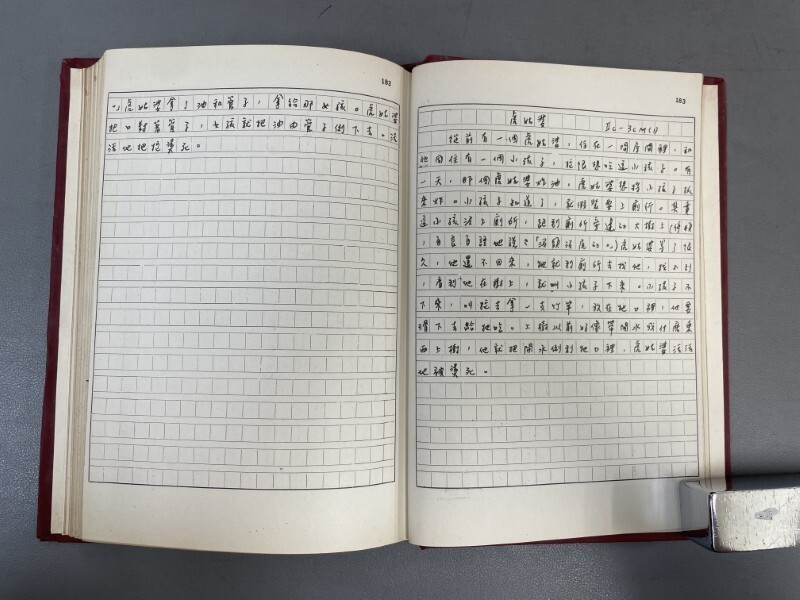 182
）虎姑婆拿了油和管子，拿給那女孩。虎姑婆
把口對著管子，女孩就把油由管子倒下去。活
活地把她燙死。
183
虎姑婆
IIC-3CM(1)
從前有一個虎姑婆，住在一間房間裡，和
她同住有一個小孩子，她很想吃這小孩子。有
一天，那個虎姑婆炸油，虎姑婆想將小孩子抓
來炸。小孩子知道了，就假裝要上廁所。其實
這小孩沒上廁所，跑到廁所旁邊的大樹上
，自言自語地說：「 」虎姑婆等了很
久，他還不回來，她就到廁所去找他，找不到
，看到他在樹上，就叫小孩子下來。小孩子不
下來，叫她去拿一支竹竿，放在她口裡，他要
滑下去給她吃。上樹以前好像帶開水或什麼東
西上樹，他就把開水倒到她口裡，虎姑婆活活
地被燙死。